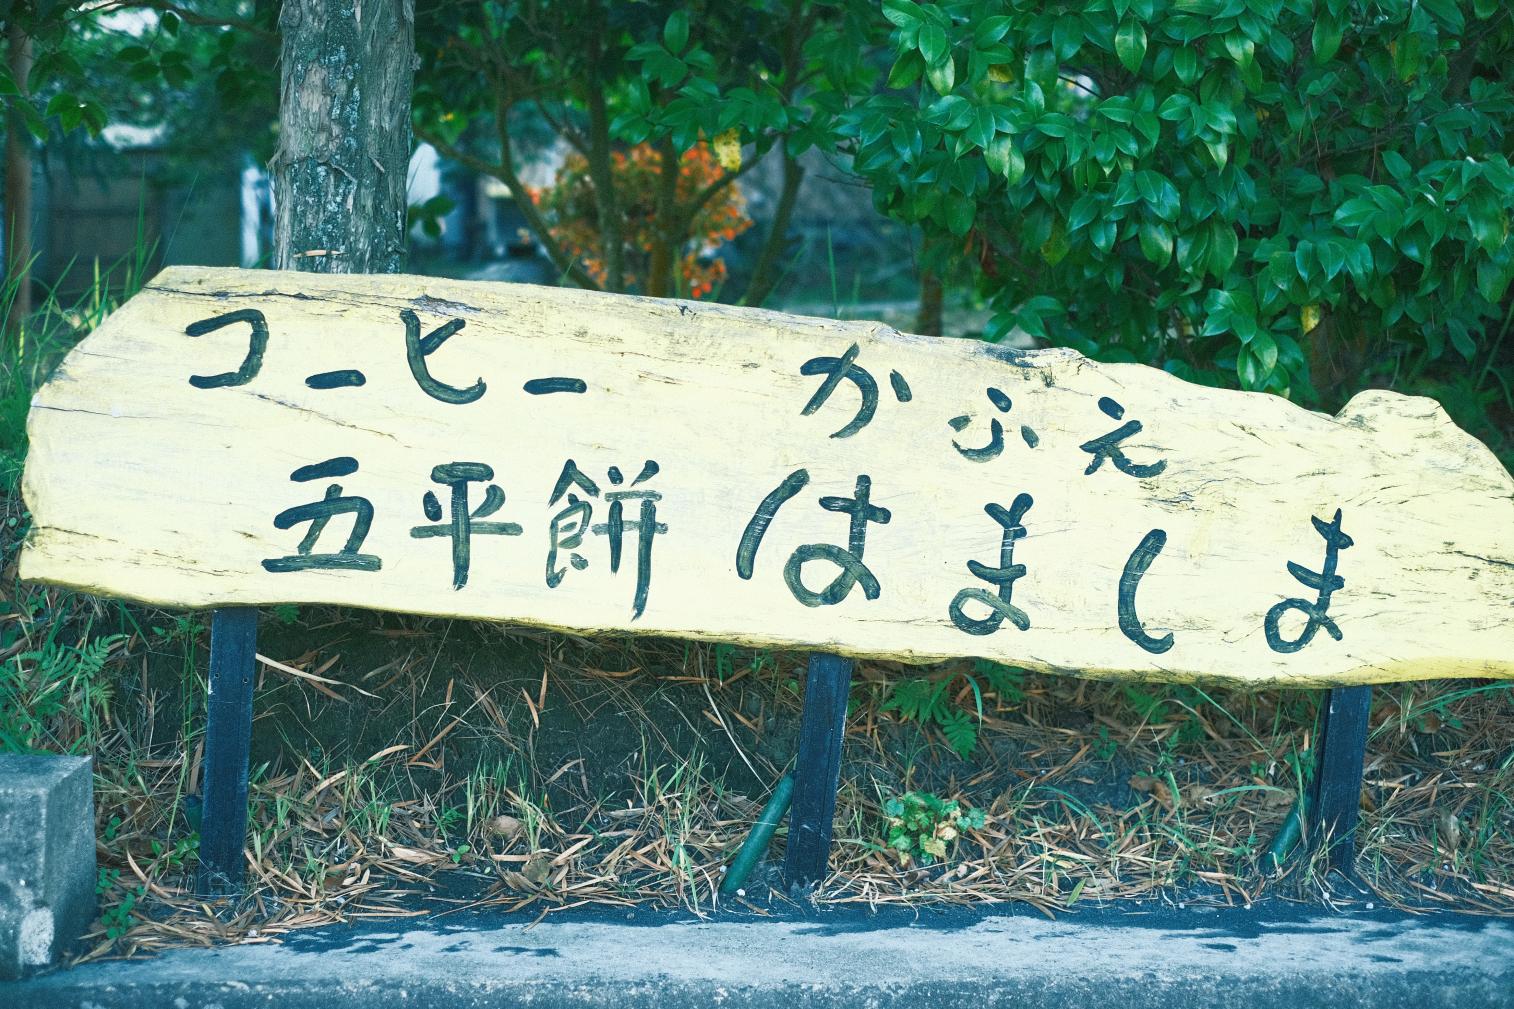 コーヒー かふえ
五平餅 はましま